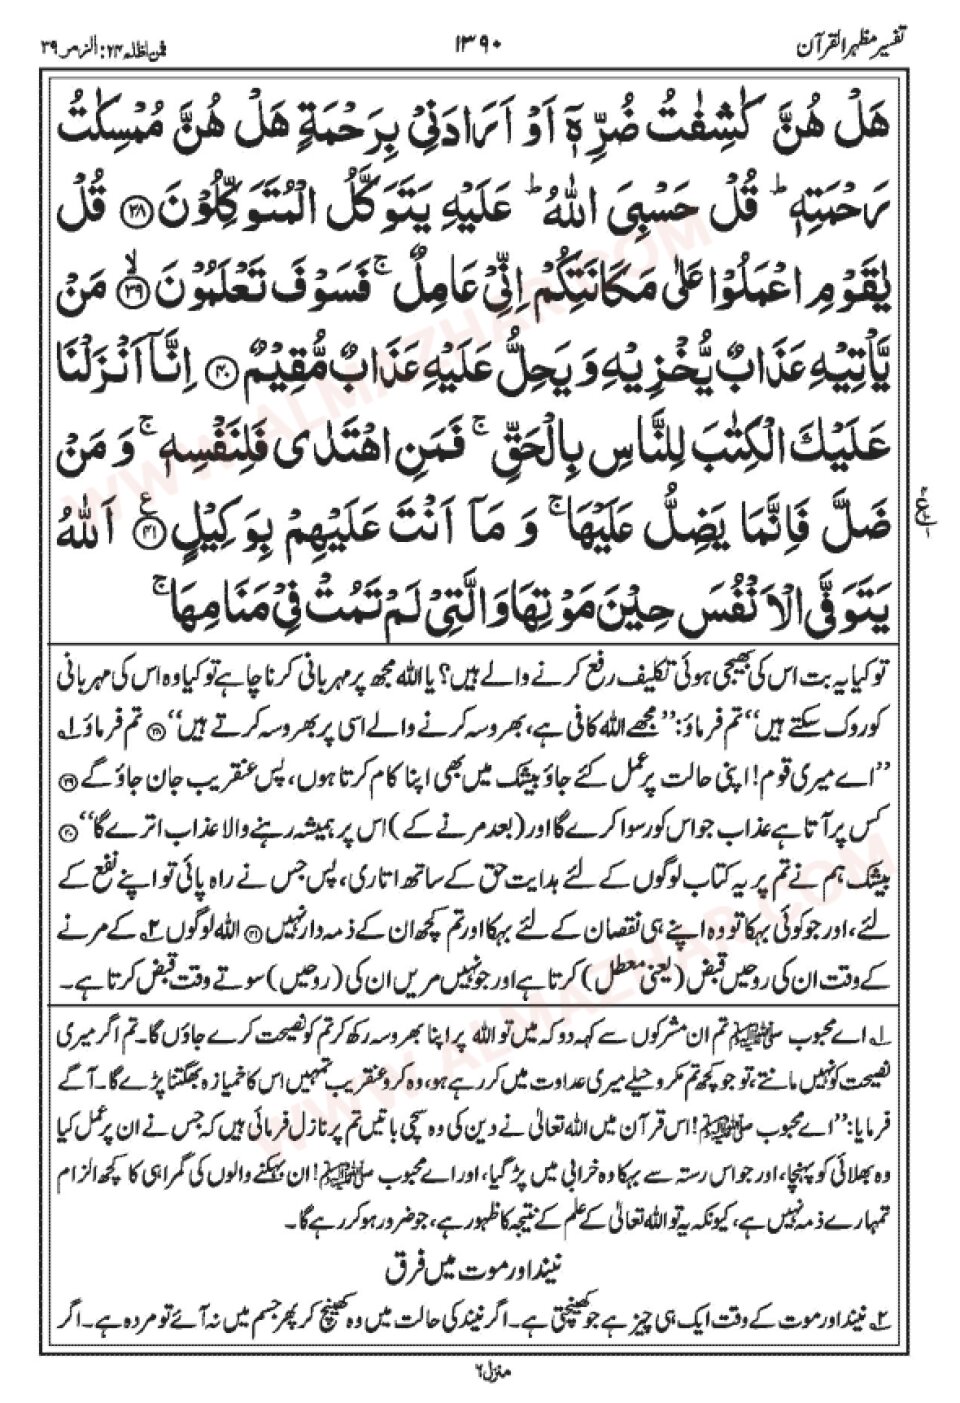 تفسیر مظہر القرآن ۱۳۹۰ فمن اظلم ۲۴: الزمر ۳۹
هَلْ هُنَّ كٰشِفٰتُ ضُرِّهٖۤ اَوْ اَرَادَنِیْ بِرَحْمَةٍ هَلْ هُنَّ مُمْسِكٰتُ
رَحْمَتِهٖ ؕ قُلْ حَسْبِیَ اللّٰهُ ؕ عَلَیْهِ یَتَوَكَّلُ الْمُتَوَكِّلُوْنَ ﴿۳۸﴾ قُلْ
یٰقَوْمِ اعْمَلُوْا عَلٰی مَكَانَتِكُمْ اِنِّیْ عَامِلٌ ۚ فَسَوْفَ تَعْلَمُوْنَ ﴿ۙ۳۹﴾ مَنْ
یَّاْتِیْهِ عَذَابٌ یُّخْزِیْهِ وَ یَحِلُّ عَلَیْهِ عَذَابٌ مُّقِیْمٌ ﴿۴۰﴾ اِنَّاۤ اَنْزَلْنَا
عَلَیْكَ الْكِتٰبَ لِلنَّاسِ بِالْحَقِّ ۚ فَمَنِ اهْتَدٰی فَلِنَفْسِهٖ ۚ وَ مَنْ
ضَلَّ فَاِنَّمَا یَضِلُّ عَلَیْهَا ۚ وَ مَاۤ اَنْتَ عَلَیْهِمْ بِوَكِیْلٍ ﴿۴۱﴾ ع اَللّٰهُ
یَتَوَفَّی الْاَنْفُسَ حِیْنَ مَوْتِهَا وَ الَّتِیْ لَمْ تَمُتْ فِیْ مَنَامِهَا ۚ
تو کیا یہ بت اس کی بھیجی ہوئی تکلیف رفع کرنے والے ہیں؟ یا اللہ مجھ پر مہربانی کرنا چاہے تو کیا وہ اس کی مہربانی
کو روک سکتے ہیں“ تم فرماؤ: ”مجھے اللہ کافی ہے، بھروسہ کرنے والے اسی پر بھروسہ کرتے ہیں“ ﴿۳۸﴾ تم فرماؤ ۱؎
”اے میری قوم! اپنی حالت پر عمل کئے جاؤ بیشک میں بھی اپنا کام کرتا ہوں، پس عنقریب جان جاؤ گے ﴿۳۹﴾
کس پر آتا ہے عذاب جو اس کو رسوا کرے گا اور (بعد مرنے کے) اس پر ہمیشہ رہنے والا عذاب اترے گا“ ﴿۴۰﴾
بیشک ہم نے تم پر یہ کتاب لوگوں کے لئے ہدایت حق کے ساتھ اتاری، پس جس نے راہ پائی تو اپنے نفع کے
لئے، اور جو کوئی بہکا تو وہ اپنے ہی نقصان کے لئے بہکا اور تم کچھ ان کے ذمہ دار نہیں ﴿۴۱﴾ اللہ لوگوں ۲؎ کے مرنے
کے وقت ان کی روحیں قبض (یعنی معطل) کرتا ہے اور جو نہیں مریں ان کی (روحیں) سوتے وقت قبض کرتا ہے۔
۱؎ اے محبوب ﷺ تم ان مشرکوں سے کہہ دو کہ میں تو اللہ پر اپنا بھروسہ رکھ کر تم کو نصیحت کرے جاؤں گا۔ تم اگر میری
نصیحت کو نہیں مانتے، تو جو کچھ تم مکر و حیلے میری عداوت میں کر رہے ہو، وہ کرو عنقریب تمہیں اس کا خمیازہ بھگتنا پڑے گا۔ آگے
فرمایا: ”اے محبوب ﷺ! اس قرآن میں اللہ تعالیٰ نے دین کی وہ سچی باتیں تم پر نازل فرمائی ہیں کہ جس نے ان پر عمل کیا
وہ بھلائی کو پہنچا، اور جو اس رستہ سے بہکا وہ خرابی میں پڑ گیا، اور اے محبوب ﷺ! ان بہکنے والوں کی گمراہی کا کچھ الزام
تمہارے ذمہ نہیں ہے، کیونکہ یہ تو اللہ تعالیٰ کے علم کے نتیجہ کا ظہور ہے، جو ضرور ہو کر رہے گا۔
نیند اور موت میں فرق
۲؎ نیند اور موت کے وقت ایک ہی چیز ہے جو کھینچتی ہے۔ اگر نیند کی حالت میں وہ کھینچ کر پھر جسم میں نہ آئے تو مردہ ہے۔ اگر
منزل ۶
WWW.ALMAZHAR.COM
WWW.ALMAZHAR.COM